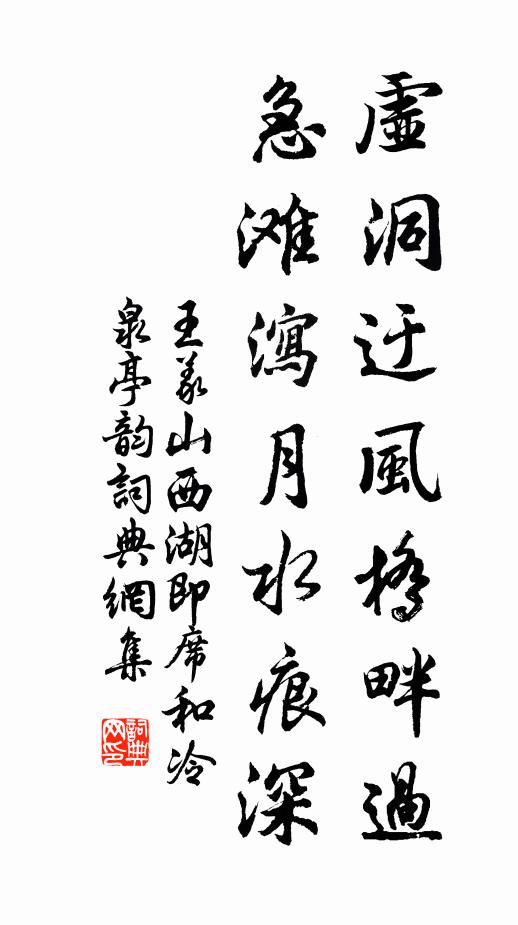 虛洞迂風橋畔過
急滩瀉月水痕深
王義山西湖即席和冷
泉亭韵詞典網集
詞典网印